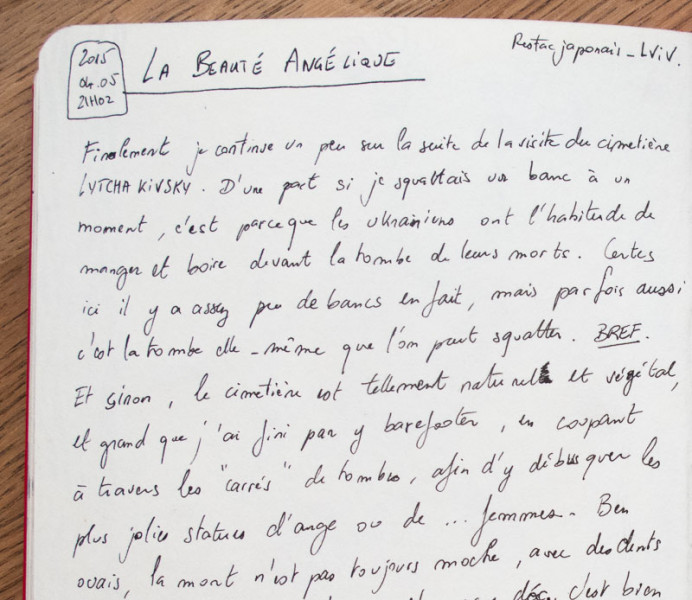 2015
04.05
21H02
LA BEAUTÉ ANGÉLIQUE
Restac japonais - LViV.
Finalement je continue un peu sur la suite de la visite du cimetière
LYTCHAKIVSKY. D'une part si je squattais un banc à un
moment, c'est parce que les ukrainiens ont l'habitude de
manger et boire devant la tombe de leurs morts. Certes
ici il y a assez peu de bancs en fait, mais parfois aussi
c'est la tombe elle-même que l'on peut squatter. BREF.
Et sinon, le cimetière est tellement naturel et végétal,
et grand que j'ai fini par y barefooter, en coupant
à travers les "carrés" de tombes, afin d'y débusquer les
plus jolies statues d'ange ou de ... femmes. Ben
ouais, la mort n'est pas toujours moche, avec des dents
c'est bien